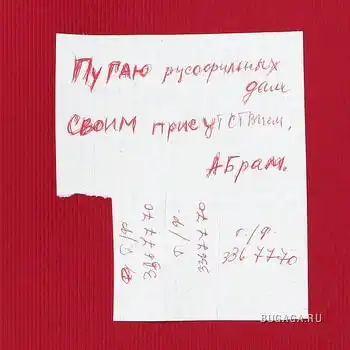 Пугаю русофильных
дам
своим присутствием.
Абрам.
т./ф.
336 77 70
т./ф.
336 77 70
т./ф.
336.77.70
BUGAGA.RU